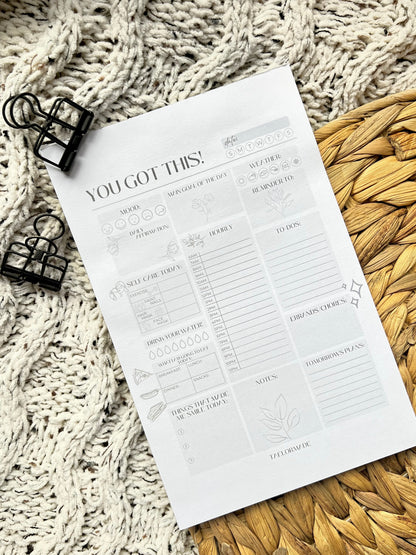 Date:
S M T W T F S
YOU GOT THIS!
WEATHER:
MAIN GOAL OF THE DAY
MOOD:
REMINDER TO:
DAILY AFFIRMATION:
HOURLY
TO-DO'S:
SELF CARE TODAY:
EXERCISE
ERRANDS/CHORES:
DRINK YOUR WATER:
WHAT I'M GOING TO EAT TODAY:
BREAKFAST
LUNCH
DINNER
SNACKS
TOMORROW'S PLANS:
NOTES:
THINGS THAT MADE ME SMILE TODAY:
1
2
3
TAILORMADE